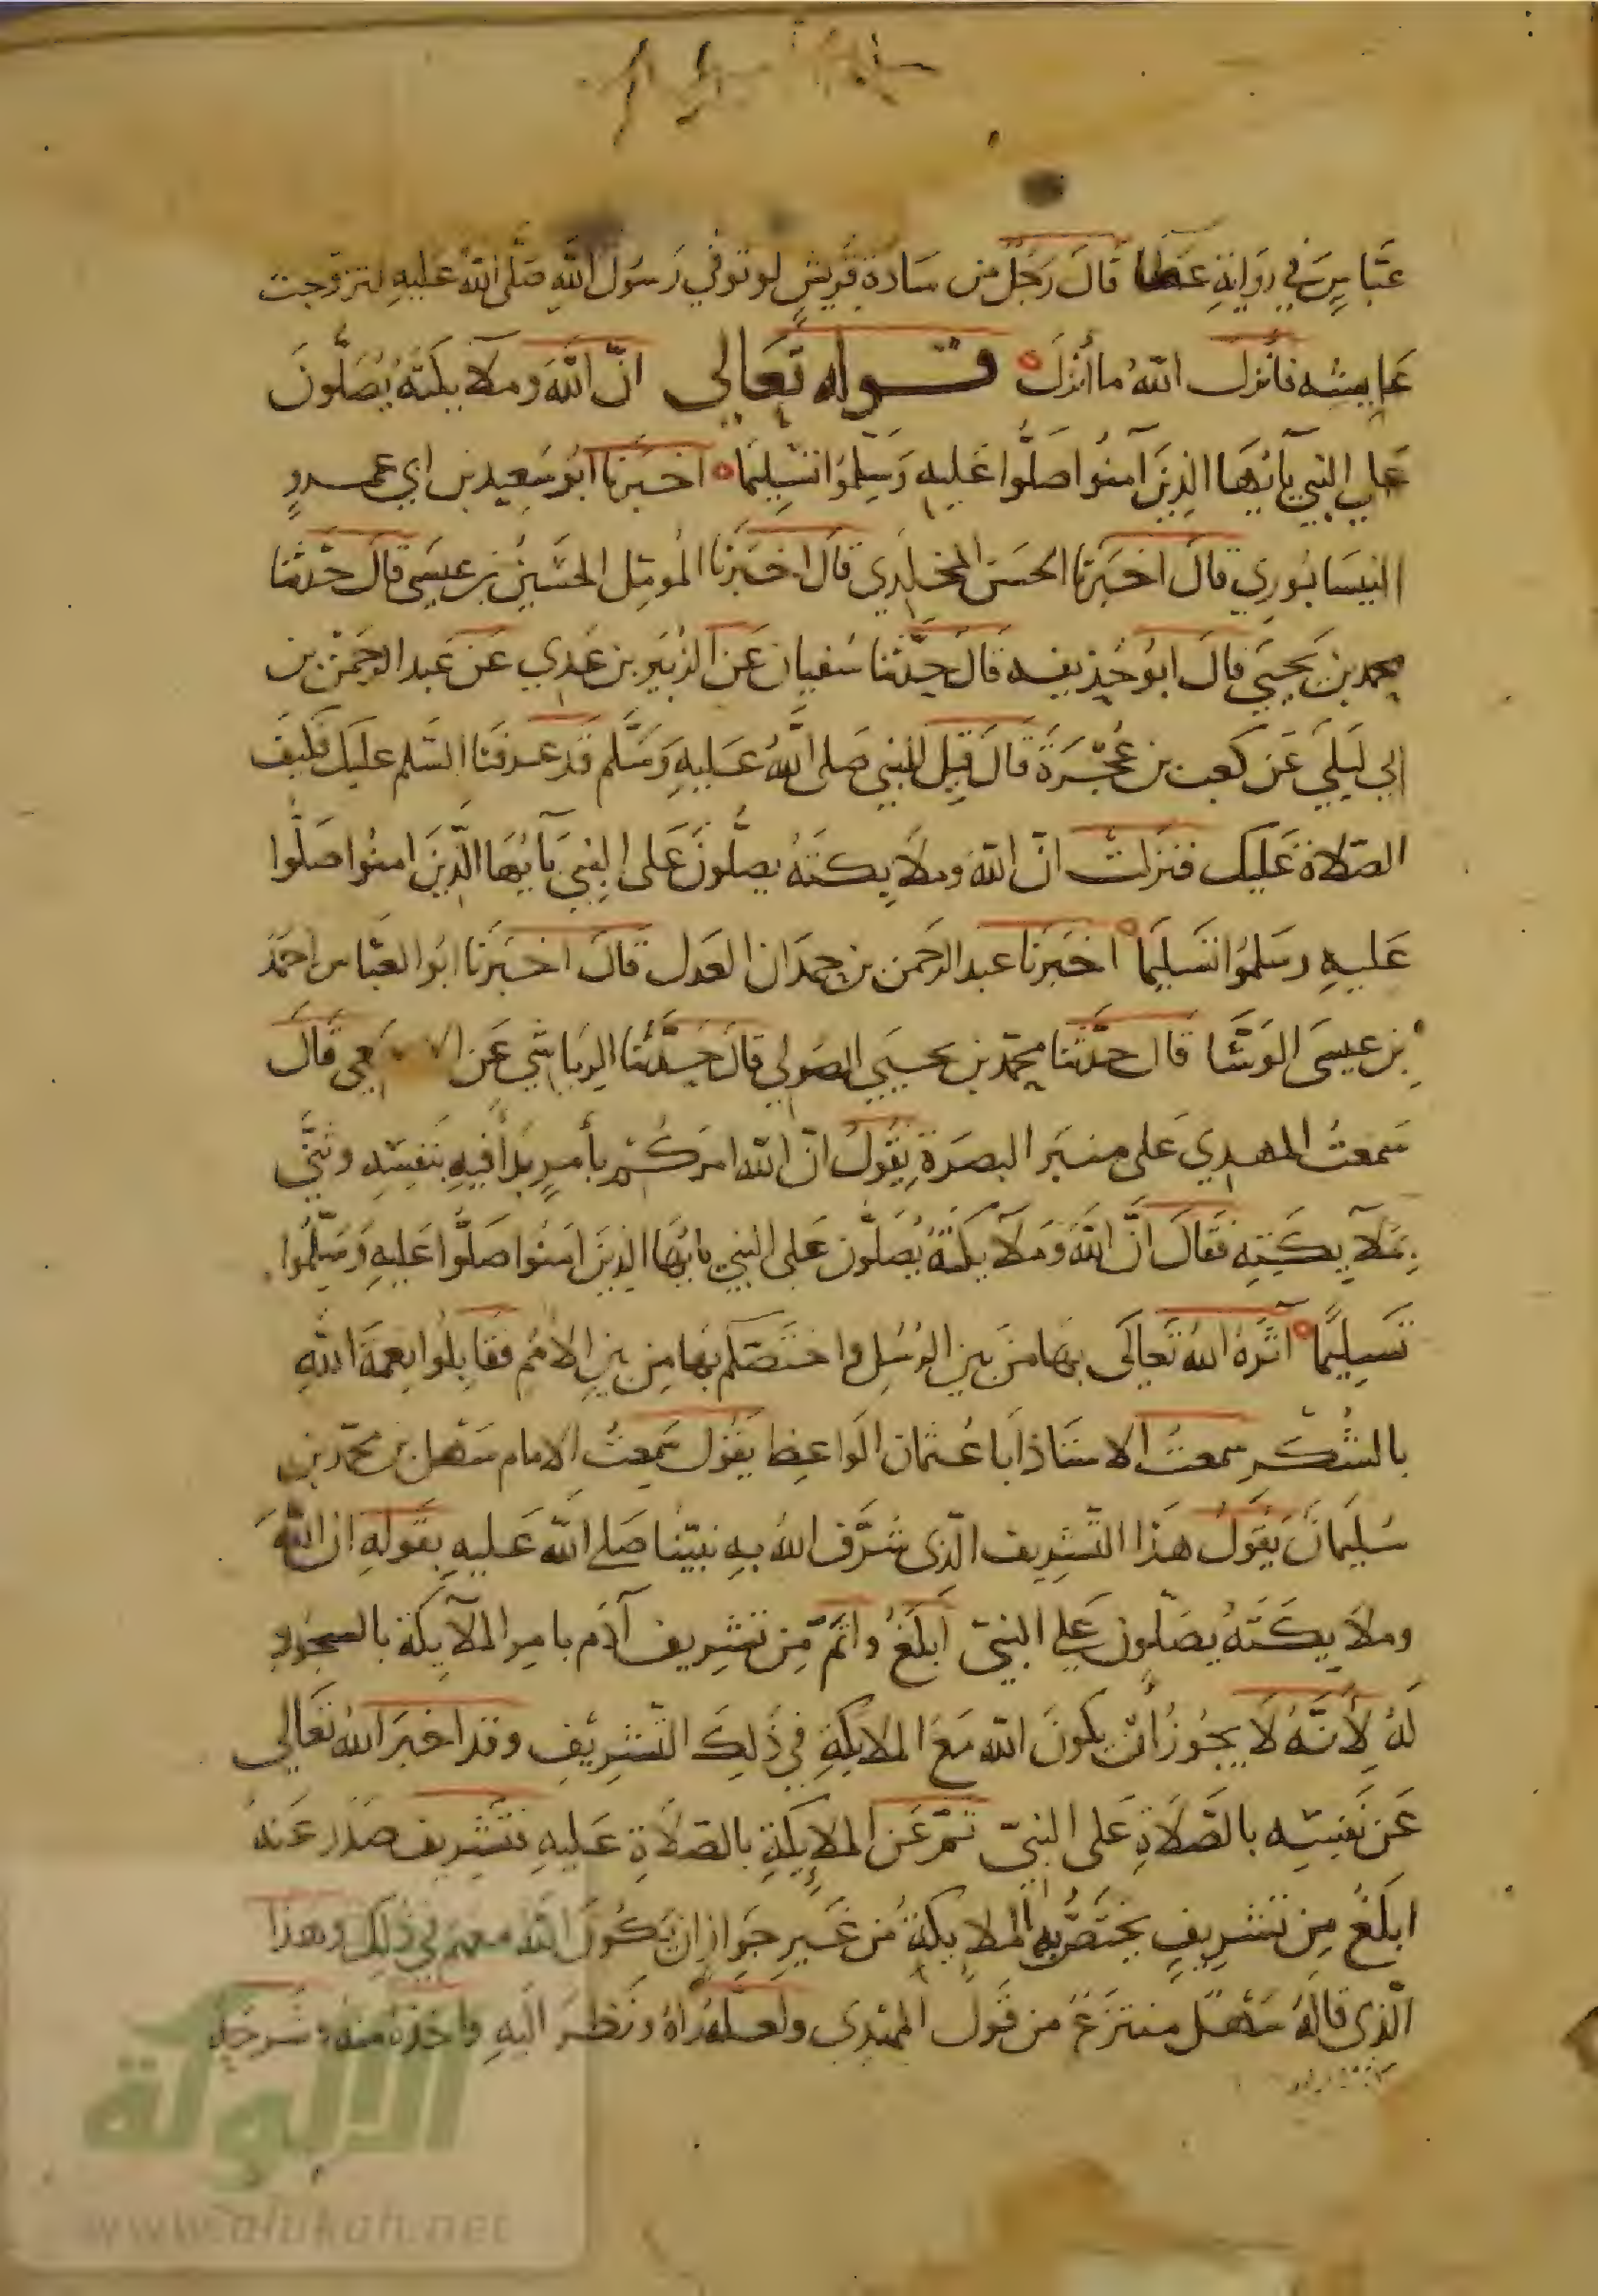 عباس في رواية عطا قال رجل من سادة قريش لو توفي رسول الله صلى الله عليه لتزوجت
عايشه فأنزل الله ما أنزل قوله تعالى ان الله وملايكته يصلون
على النبي يآيها الذين آمنوا صلوا عليه وسلموا تسليما اخبرنا ابو سعيد بن ابي عمرو
النيسابوري قال اخبرنا الحسن المخلدي قال اخبرنا المومل الحسين بن عيسى قال حدثنا
محمد بن يحيى قال ابو حذيفه قال حدثنا سفيان عن الزبير بن عدي عن عبد الرحمن بن
ابي ليلى عن كعب بن عجرة قال قيل للنبي صلى الله عليه وسلم قد عرفنا السلم عليك فكيف
الصلاة عليك فنزلت ان الله وملايكته يصلون على النبي يآيها الذين امنوا صلوا
عليه وسلموا تسليما اخبرنا عبد الرحمن بن حمدان العدل قال اخبرنا ابو العباس احمد
بن عيسى الوشا قال حدثنا محمد بن يحيى الصولي قال حدثنا الرياشي عن قال
سمعت المهدي على منبر البصرة يقول ان الله امركم بأمر بدأ فيه بنفسه وثنى
بملايكته فقال ان الله وملايكته يصلون على النبي يايها الذين امنوا صلوا عليه وسلموا
تسليما آثره الله تعالى بها من بين الرسل واختصكم بها من بين الامم فقابلوا نعمة الله
بالشكر سمعت الاستاذ ابا عثمان الواعظ يقول سمعت الامام سهل بن محمد بن
سليمان يقول هذا التشريف الذي شرف الله به نبينا صلى الله عليه بقوله ان الله
وملايكته يصلون على النبي ابلغ واتم من تشريف آدم بامر الملآيكة بالسجود
له لأنه لا يجوز أن يكون الله مع الملايكة في ذلك التشريف وقد اخبر الله تعالى
عن نفسه بالصلاة على النبي ثم عن الملايكة بالصلاة عليه فتشريف صدر عنه
ابلغ من تشريف يختص به الملايكة من غير جواز ان يكون الله معهم في ذلك وهذا
الذي قاله سهل منتزع من قول المهدي ولعله رآه ونظر اليه واخذه منه وشرحه